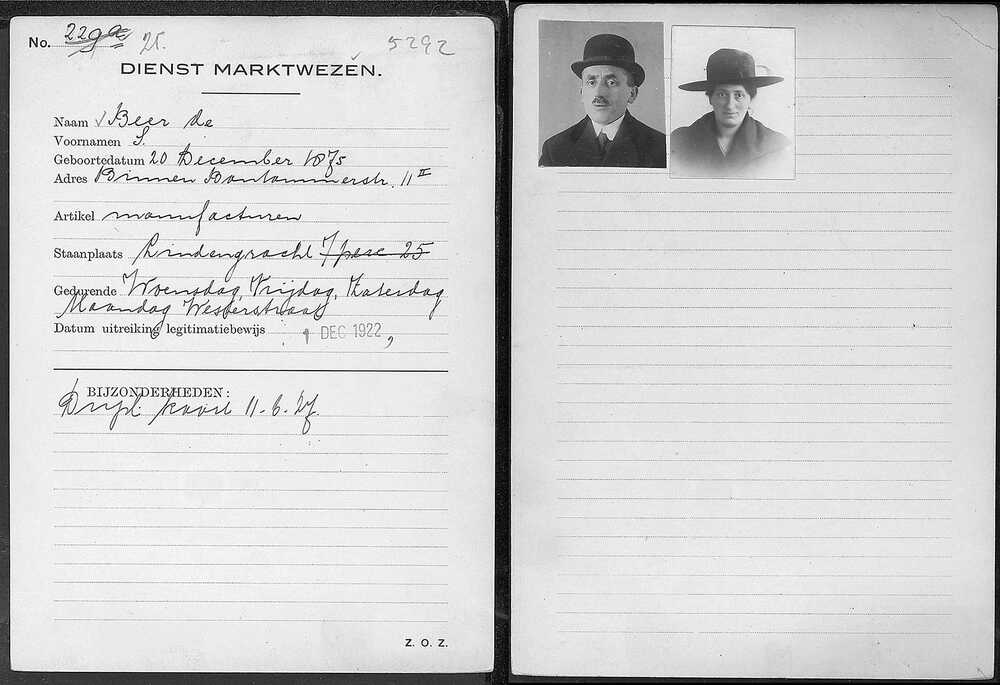 No. 229a 25. 5292
DIENST MARKTWEZEN.
Naam √ Beer de
Voornamen S.
Geboortedatum 20 December 1875
Adres Binnen Bantammerstr. 11 II
Artikel manufacturen
Staanplaats Lindengracht 25
Gedurende Woensdag, Vrijdag, Zaterdag
Maandag Westerstraat
Datum uitreiking legitimatiebewijs 1 DEC 1922,
BIJZONDERHEDEN:
Dupl. kaart 11.6.27.
Z. O. Z.